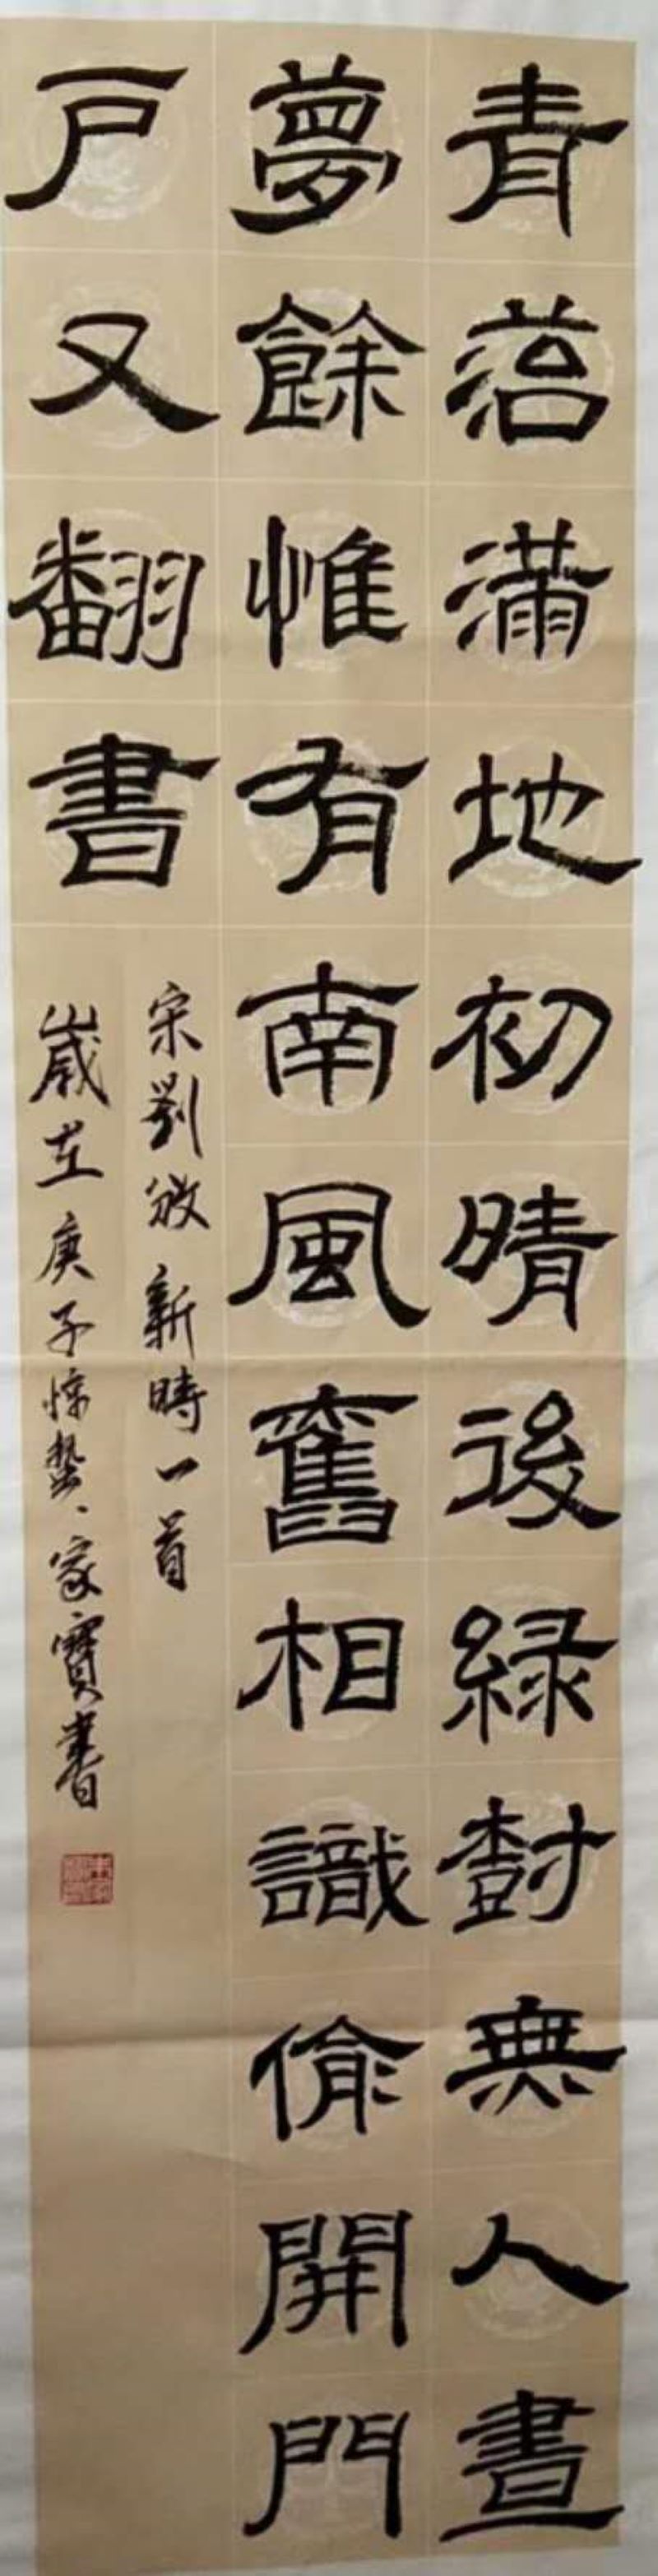 青菭滿地初晴後綠樹無人晝
夢餘惟有南風舊相識偷開門
戶又翻書
宋劉攽新時一首
歲在庚子惊蟄、家寶書